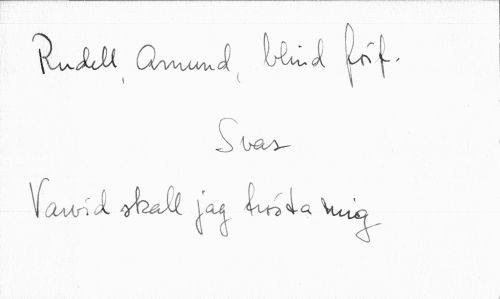 Rudell, Amund, blind förf.
Svar
Varvid skall jag trösta mig